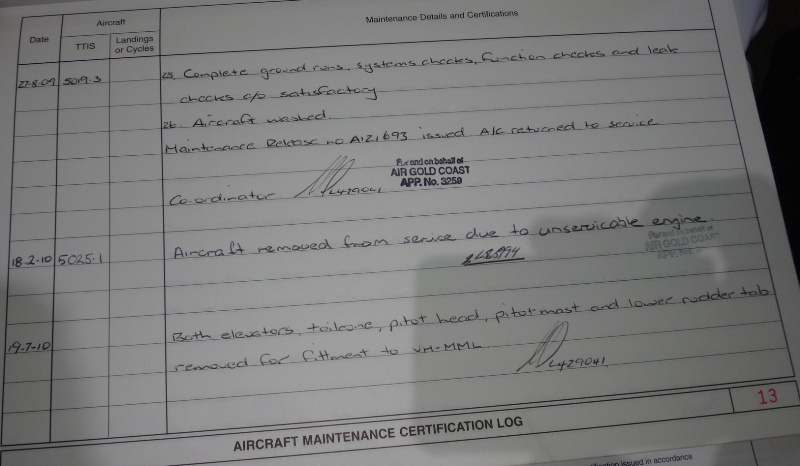 Date
Aircraft
TTIS
Landings
or Cycles
Maintenance Details and Certifications
27.8.09 5019.3 25. Complete ground runs, systems checks, function checks and leak
checks c/o satisfactory
26. Aircraft washed.
Maintenance Release no A121693 issued A/C returned to service
Co-ordinator L429041
For and on behalf of
AIR GOLD COAST
APP. No. 3259
18.2.10 5025.1 Aircraft removed from service due to unservicable engine.
For and on behalf of
AIR GOLD COAST
APP. No.
19-7-10 Both elevators, tailcone, pitot head, pitot mast and lower rudder tab
removed for fittment to VH-MML L429041
13
AIRCRAFT MAINTENANCE CERTIFICATION LOG
issued in accordance